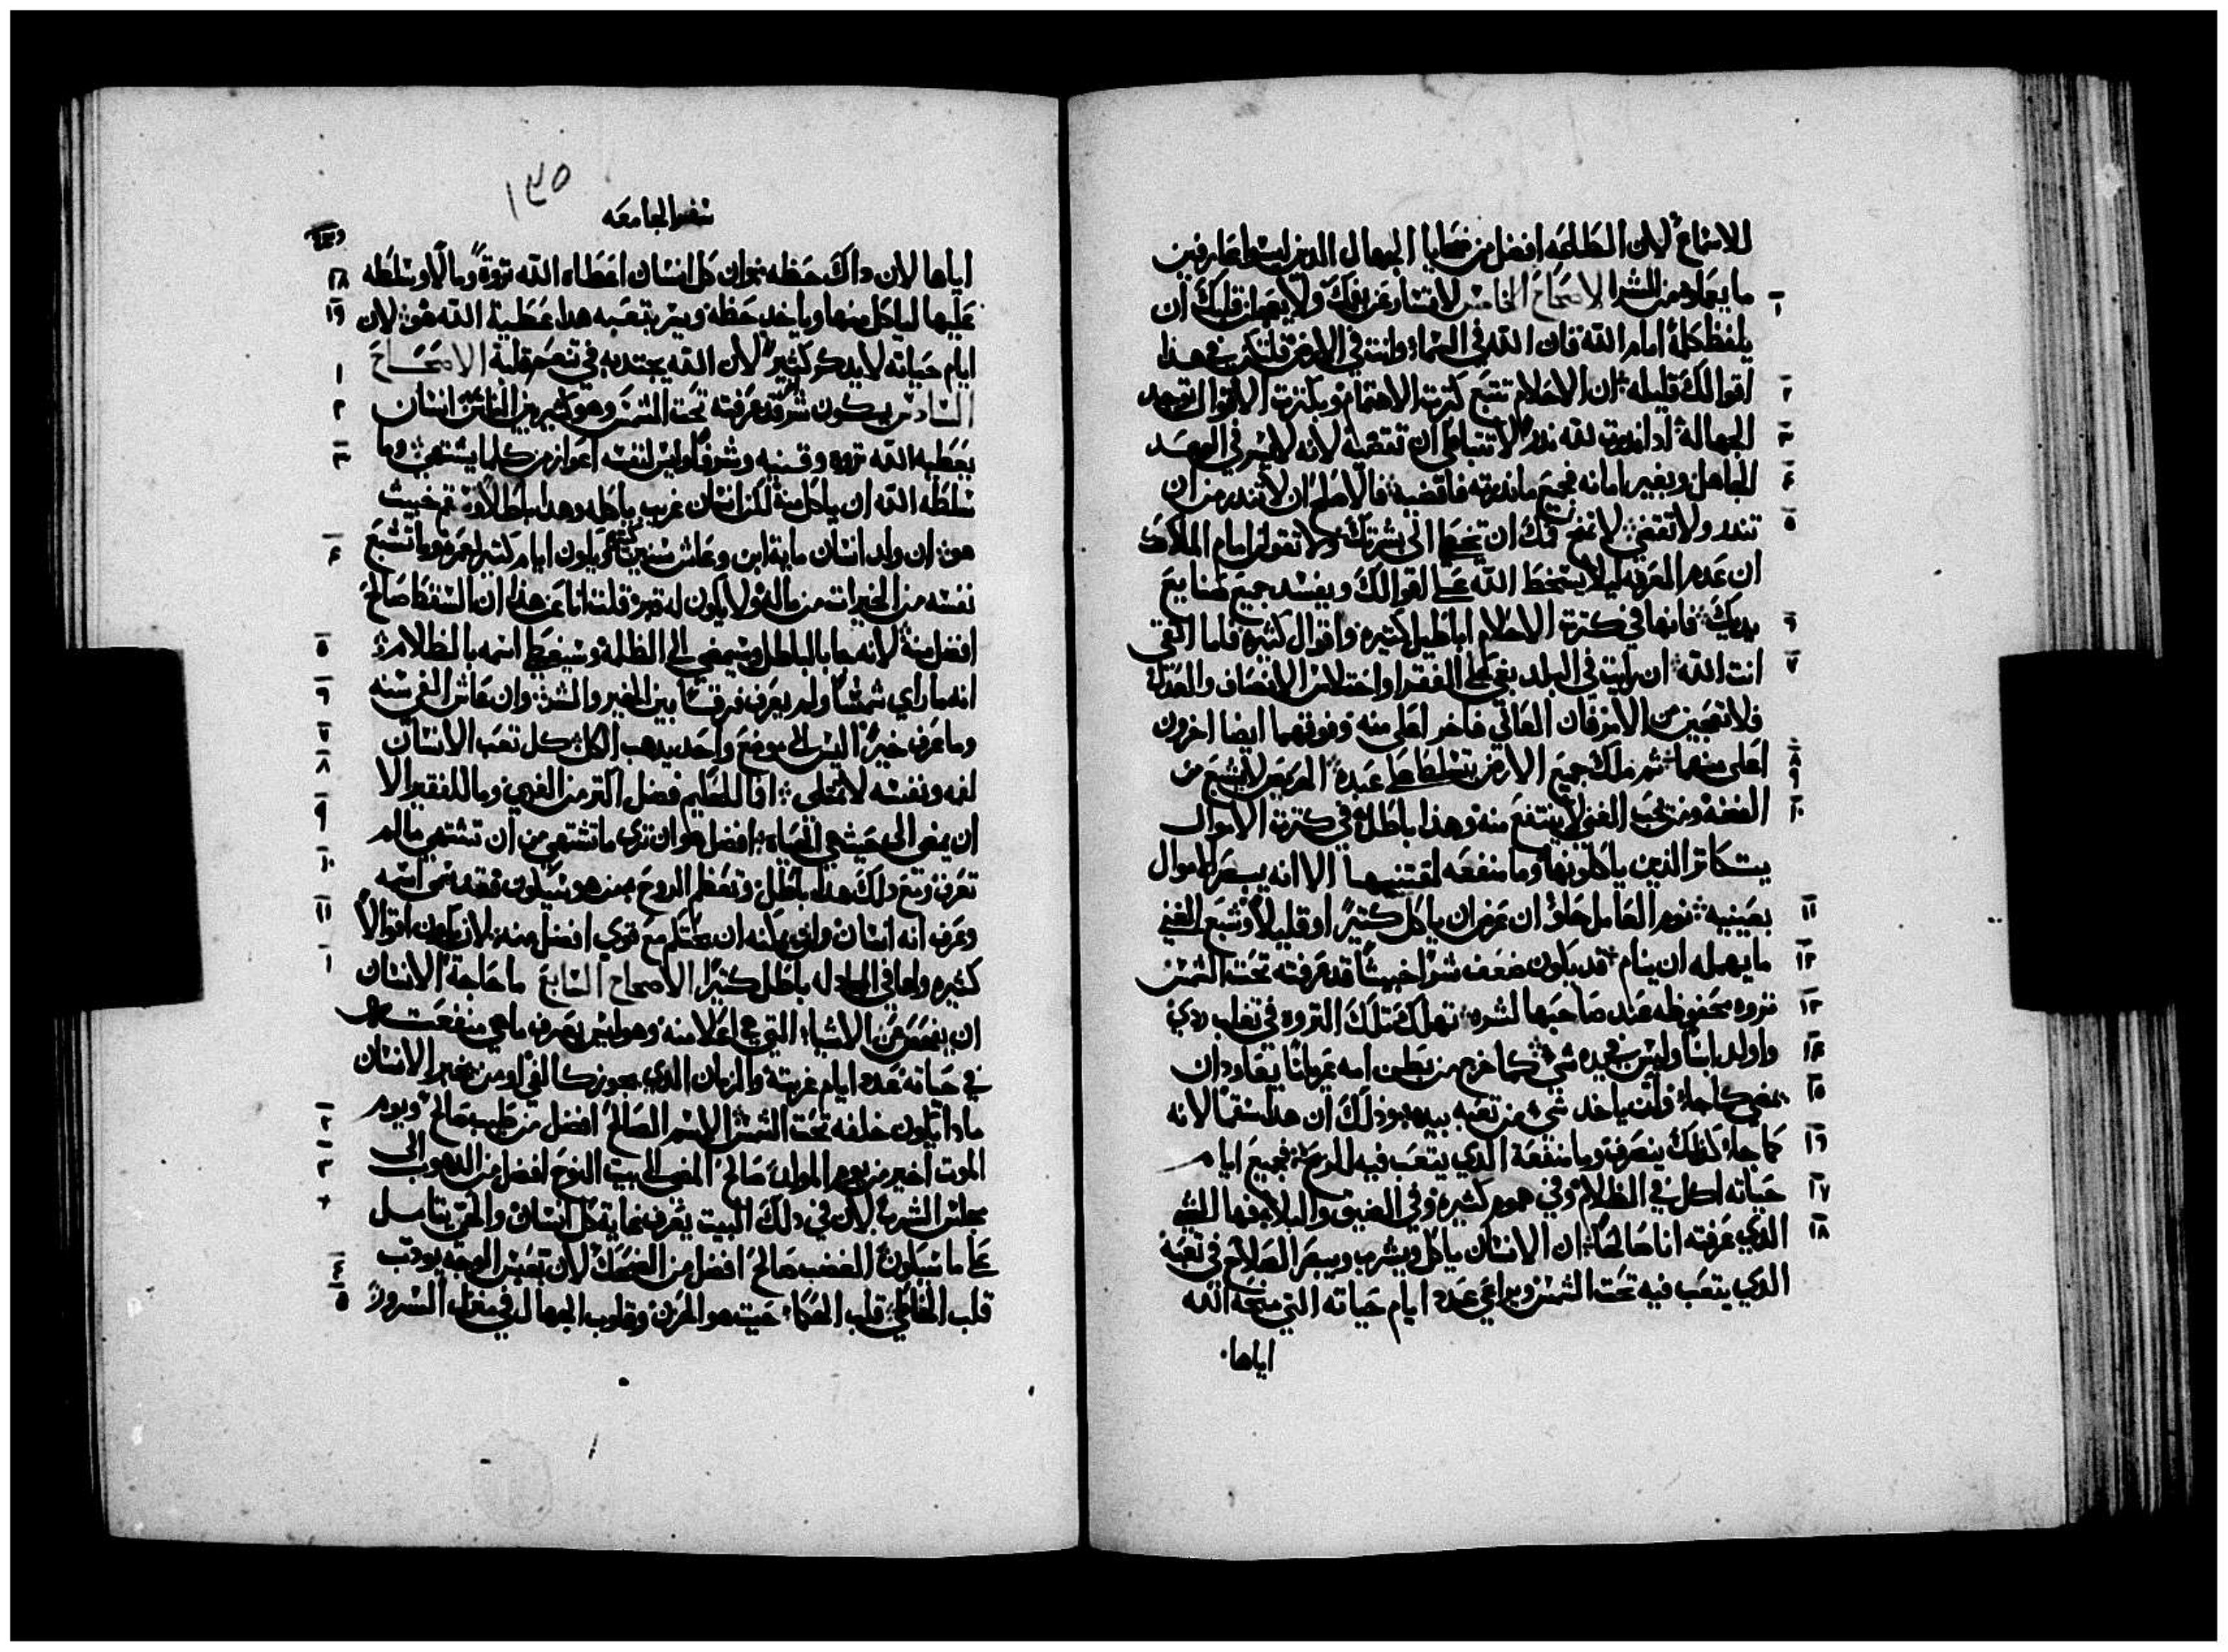 للاستماع لان الطاعه افضل من ضحايا الجهال الذين ليسوا عارفين
ما يعملوه من الشر الاصحاح الخامس لا تتسارع بفمك ولا يعجل قلبك ان
١
يلفظ كلمة امام الله فان الله في السماء وانت في الارض فلتكن هذا
اقوالك قليله ان الاحلام تتبع كثرت الاهتمام وبكثرت الاقوال توجد
٢
الجهالة اذا نذرت لله نذر لا تتباطى ان تقضيه لانه لا يسر في العهد
٣
الجاهل وبغير امانه فجميع ما نذرته فاقضيه فالاصلح ان لا تنذر من ان
٤
تنذر ولا تقضي لا تمنح فمك ان تخطي الى بشرتك ولا تقول امام الملاك
٥
ان عدم المعرفه ليلا يسخط الله على اقوالك ويفسد جميع صنايع
يديك فانها في كثرت الاحلام اباطيل كثيره واقوال كثيره فاما اتقي
٦
انت الله ان رايت في البلد بغي على الفقرا واختلاس الانصاف والعداله
٧
فلا تعجبن من الامر فان العالي فاخر اعلى منه وفوقهما ايضا اخرون
اعلى منهما ثم ملك جميع الارض يتسلط على عبده المريض لا يشبع من
٨
٩
الفضه ومن يحب الغنى لا ينتفع منه وهذا باطل في كثرت الاموال
١٠
يتكاثر الذين ياكلونها وما منفعه لمقتنيها الا انه يبصر الاموال
بعينيه نوم العامل حلو ان عرض ان ياكل كثيرا او قليلا وشبع الغني
١١
ما يهمله ان ينام قد يكون ضعف شرا خبيثا قد عرفته تحت الشمس
١٢
ثروه محفوظه عند صاحبها لشره تهلك تلك الثروه في تقلب ردي
١٣
واولد ابنا وليس في يده شي كما خرج من بطن امه عريانا يعاود ان
١٤
يمضي كما جاء ولن ياخذ شي من تعبه بيده وذلك ان هذا سقما لانه
١٥
كما جاء كذلك ينصرف وما منفعة الذي يتعب فيه للريح فجميع ايام
١٦
حياته اكل في الظلام وفي هموم كثيره وفي الضيق والبلاء فها الشي
١٧
الذي عرفته انا صالحا ان الانسان ياكل ويشرب ويبصر الصلاح في تعبه
١٨
الذي يتعب فيه تحت الشمس ويراعي عدد ايام حياته التي منحه الله
اياها
١٣٥
سفر الجامعه
اياها لان ذاك حظه نحو ان كل انسان اعطاه الله ثروة ومالا وسلطه
١٨
عليها لياكل منها وياخذ حظه ويسر بتعبه هذا عطية الله هو لان
١٩
ايام حياته لا يذكر كثيرا لان الله يجتذبه في تنعم قلبه الاصحاح
١
السادس يكون شر قد عرفته تحت الشمس وهو كثير بين الناس انسان
٢
يعطيه الله ثروه وقنيه وشرفا وليس لنفسه اعواز من كلما يشتهي وما
٣
سلطه الله ان ياكل منه لكن انسان غريب ياكله وهذا باطلا وسقم خبيث
هو ان ولد انسان ماية ابن وعاش سنين كثيره ويكون ايام كثير لعمره وما تشبع
٤
نفسه من الخيرات من ماله ولا يكون له قبر قلت انا عن هذا ان السقط صالح
افضل منه لانه جا بالباطل ويمضي الى الظلمه وسيغطي اسمه بالظلام
٥
انه ما راي شمسا ولم يعرف فرقا بين الخير والشر وان عاش الفي سنه
٦
وما عرف خيرا اليس الى موضع واحد يذهب الكل كل تعب الانسان
٧
لفمه ونفسه لا تمتلي افا للحكيم فضل اكثر من الغبي وما للفقير الا
٨
ان يمضي الى حيث هي الحياه افضل هو ان تري ما تشتهي من ان تشتهي مالم
٩
تعرف ومع ذلك هذا باطل وتعظم الروح من هو سيكون فقد سمى اسمه
١٠
وعرف انه انسان وان يمكنه ان يحتكم مع قوي افضل منه لان يكون اقوالا
١١
كثيره ولها في المجادله باطل كثيرا الاصحاح السابع ما حاجة الانسان
١
ان يفحص عن الاشياء التي هي اعلا منه وهو ليس يعرف ما هي منفعت
في حياته عدد ايام غربته والزمان الذي يجوز كالفي او من يخبر الانسان
ماذا يكون خلفه تحت الشمس الاسم الصالح افضل من طيب صالح ويوم
٢
الموت اخير من يوم المولد صالح المضي الى بيت النوح افضل من الذهوب الى
٣
مجلس الشرب لان في ذلك البيت يعرف نهاية كل انسان والحي يتامل
على ما سيكون الغضب صالح افضل من الضحك لان تعبس الوجه يودب
٤
قلب الخاطي قلب الحكماء حيث هو الحزن وقلوب الجهال في مغزل السرور
٥